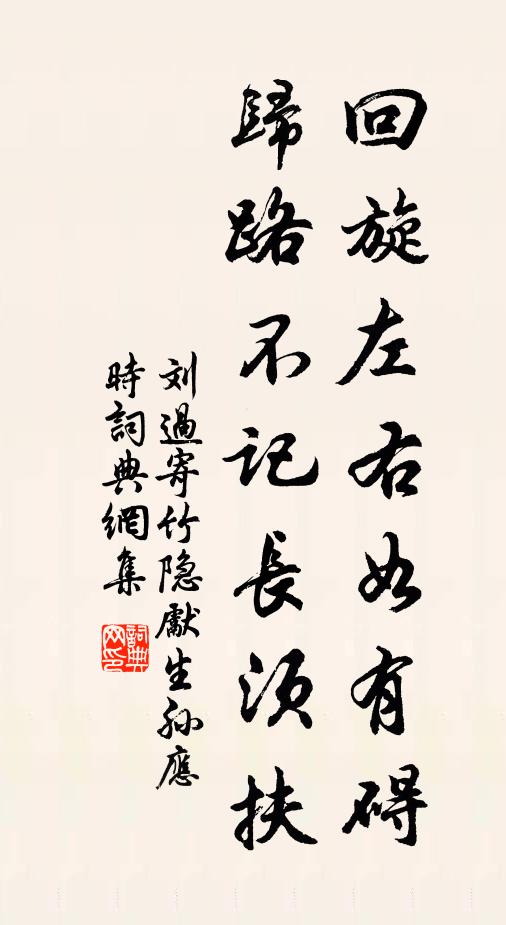 回旋左右如有碍
歸路不记長须扶
刘過寄竹隐獻生孙應
時詞典網集
詞典
网印